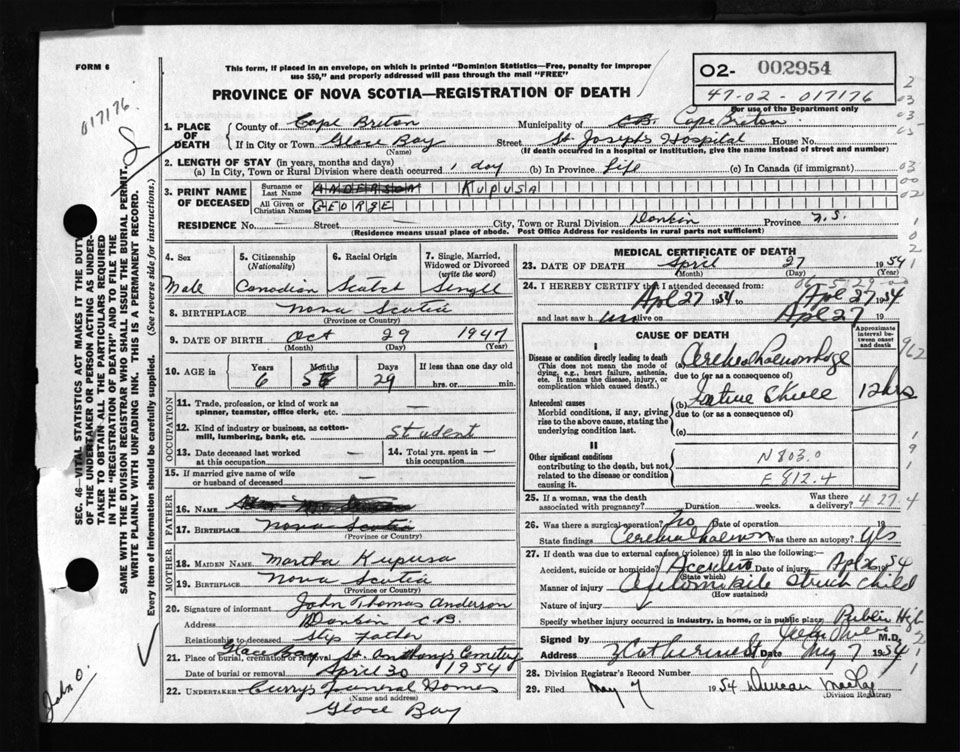 FORM 6
This form, if placed in an envelope, on which is printed "Dominion Statistics—Free, penalty for improper
use $50," and properly addressed will pass through the mail "FREE"
PROVINCE OF NOVA SCOTIA—REGISTRATION OF DEATH
02- 002954
47-02-017176
For use of the Department only
017176
1. PLACE OF DEATH
County of Cape Breton Municipality of C.B. Cape Breton
If in City or Town Glace Bay Street St. Joseph's Hospital House No.
(Name) (If death occurred in a hospital or institution, give the name instead of street and number)
2. LENGTH OF STAY (in years, months and days)
(a) In City, Town or Rural Division where death occurred 1 day (b) In Province Life (c) In Canada (if immigrant)
3. PRINT NAME OF DECEASED
Surname or Last Name ANDERSON KUPUSA
All Given or Christian Names GEORGE
RESIDENCE No. — Street — City, Town or Rural Division Donkin Province N.S.
(Residence means usual place of abode. Post Office Address for residents in rural parts not sufficient)
4. Sex
Male
5. Citizenship (Nationality)
Canadian
6. Racial Origin
7. Single, Married, Widowed or Divorced (write the word)
Single
8. BIRTHPLACE Nova Scotia
(Province or Country)
9. DATE OF BIRTH Oct 29 1947
(Month) (Day) (Year)
10. AGE in Years Months Days If less than one day old
6 5 29 hrs. or min.
OCCUPATION
11. Trade, profession, or kind of work as spinner, teamster, office clerk, etc. —
12. Kind of industry or business, as cotton-mill, lumbering, bank, etc. Student
13. Date deceased last worked at this occupation —
14. Total yrs. spent in this occupation —
15. If married give name of wife or husband of deceased —
FATHER
16. NAME
17. BIRTHPLACE Nova Scotia
(Province or Country)
MOTHER
18. MAIDEN NAME Martha Kupusa
19. BIRTHPLACE Nova Scotia
(Province or Country)
20. Signature of informant John Thomas Anderson
Address Donkin C.B.
Relationship to deceased Step Father
21. Place of burial, cremation or removal Glace Bay St. Anthonys Cemetery
Date of burial or removal April 30 1954
22. UNDERTAKER Curry's Funeral Homes
(Name and address)
Glace Bay
MEDICAL CERTIFICATE OF DEATH
23. DATE OF DEATH April 27 1954
(Month) (Day) (Year)
24. I HEREBY CERTIFY that I attended deceased from:
Apl 27 1954 to Apl 27 1954
and last saw him alive on Apl 27 19
CAUSE OF DEATH
Approximate interval between onset and death
I
Disease or condition directly leading to death
(This does not mean the mode of dying, e.g., heart failure, asthenia, etc. It means the disease, injury, or complication which caused death.)
(a)
due to (or as a consequence of)
Antecedent causes
Morbid conditions, if any, giving rise to the above cause, stating the underlying condition last.
(b) Skull 12 hrs
due to (or as a consequence of)
(c)
II
Other significant conditions
contributing to the death, but not related to the disease or condition causing it.
N803.0
E812.4
25. If a woman, was the death associated with pregnancy? Duration weeks. Was there a delivery? 4.27.4
26. Was there a surgical operation? No Date of operation 19
State findings Was there an autopsy? Yes
27. If death was due to external causes (violence) fill in also the following:—
Accident, suicide or homicide? Accident Date of injury Apl 26 1954
(State which)
Manner of injury Automobile Struck Child
(How sustained)
Nature of injury
Specify whether injury occurred in industry, in home, or in public place Public High
Signed by M.D.
Address Catherine St Date May 7 1954
28. Division Registrar's Record Number
29. Filed May 7 1954 Duncan
(Division Registrar)
SEC. 46—VITAL STATISTICS ACT MAKES IT THE DUTY
OF THE UNDERTAKER OR PERSON ACTING AS UNDER-
TAKER TO OBTAIN ALL THE PARTICULARS REQUIRED
IN THE "REGISTRATION OF DEATH" AND TO FILE THE
SAME WITH THE DIVISION REGISTRAR WHO SHALL ISSUE THE BURIAL PERMIT.
WRITE PLAINLY WITH UNFADING INK. THIS IS A PERMANENT RECORD.
Every item of information should be carefully supplied. (See reverse side for instructions.)
John O.